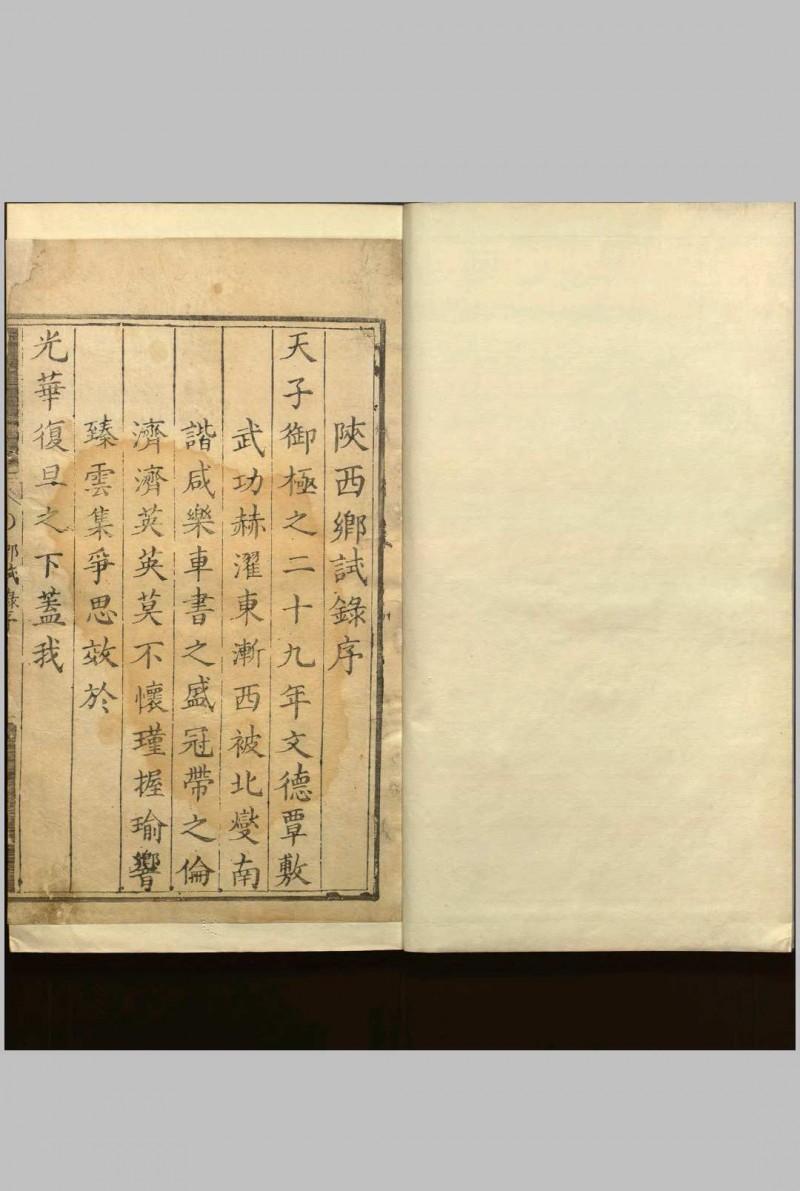 陝西鄉試錄序
天子御極之二十九年文德覃敷
武功赫濯東漸西被北燮南
諧咸樂車書之盛冠帶之倫
濟濟英英莫不懷瑾握瑜響
臻雲集爭思效於
光華復旦之下蓋我